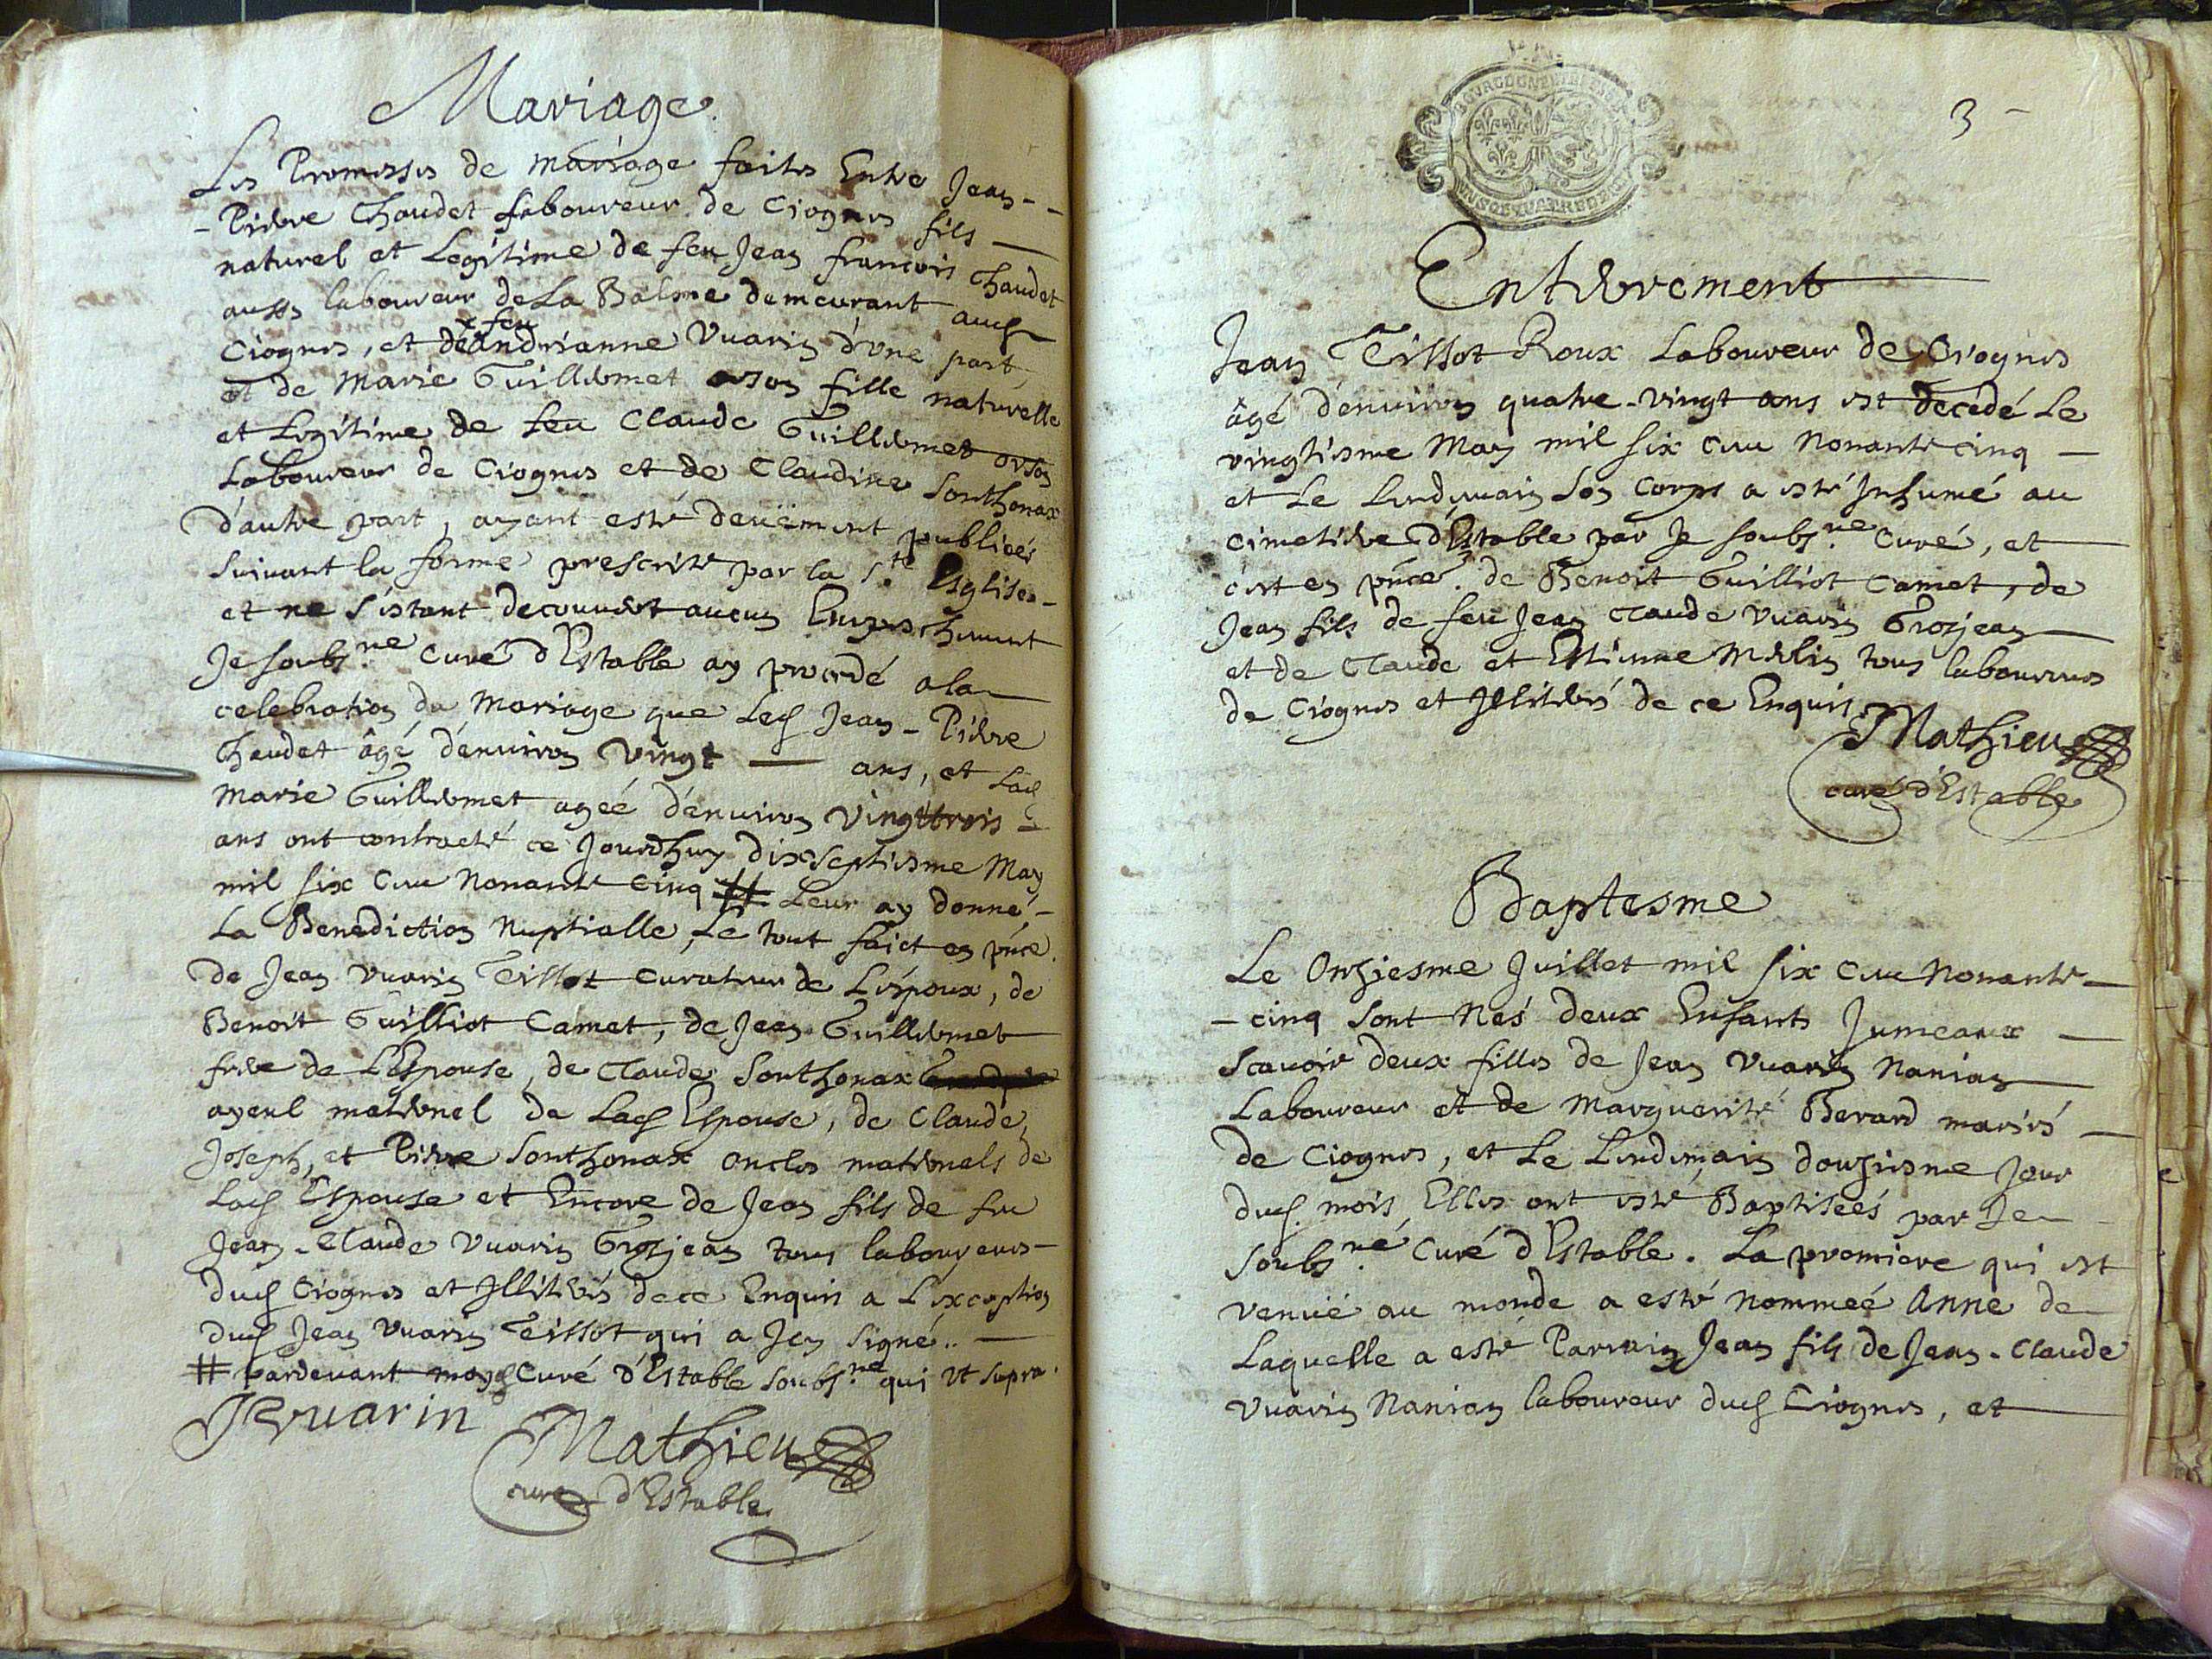 Mariage.
Les Promesses de mariage faites Entre Jean--
-Pierre Chaudet Laboureur de Ciognes fils
naturel et Legitime de feu Jean francois Chaudet
aussy laboureur de La Balme demeurant aud
Ciognes, et de feu Andrianne Vuarin d'une part,
et de Marie Guillermet orson fille naturelle
et Legitime de feu Claude Guillermet orson
Laboureur de Ciognes et de Claudine Sonthonax
d'autre part, ayant esté deüement publiées
suivant la forme prescrite par la s.te Esglise-
et ne s'estant decouvert aucun Empeschement
Je soubs.né Curé d'Estable ay procedé a la
celebration du Mariage que Led Jean-Pierre
Chaudet âgé d'environ vingt — ans, et Lad
Marie Guillermet ageé d'environ vingttrois -
ans ont contracté ce Jourdhuy dixseptiesme May
mil six cens Nonante Cinq # Leur ay donné-
La Benediction Nuptialle, Le tout faict en pñce.
de Jean Vuarin Tissot Curateur de L'Espoux, de
Benoit Guilliot Camet, de Jean Guillermet
frere de L'Espouse, de Claude Sonthonax
ayeul maternel de Lad Espouse, de Claude,
Joseph, et Pierre Sonthonax oncles maternels de
Lad Espouse et Encore de Jean fils de feu
Jean-Claude Vuarin Grosjean tous laboureurs-
dud Ciognes et Illiterés de ce Enquis a L'exception
dud Jean Vuarin Teissot qui a Icy signé..
# pardevant moy Curé d'Estable soubs.né qui ut supra.
JVuarin
Mathieu
curé d'Estable
3
BOURGOGNE
Enterrement
Jean Teissot Roux Laboureur de Ciognes
âgé d'environ quatre-vingt ans est decedé Le
vingtiesme May mil six cens Nonante cinq —
et Le Lendemain son corps a esté Inhumé au
cimetiere d'Estable par Je soubs.né Curé, et
c'est en pñce. de Benoit Guilliot Camet, de
Jean fils de feu Jean Claude Vuarin Grosjean
et de Claude et Estienne Merlin tous laboureurs
de Ciognes et Illiterés de ce Enquis.
Mathieu
curé d'Estable
Baptesme
Le Onziesme Juillet mil six cens Nonante-
-cinq sont Nés deux Enfants Jumeaux —
scavoir deux filles de Jean Vuarin Nanian
Laboureur et de Marguerite Berard mariés —
de Ciognes, et Le Lendemain douziesme Jour
dud. mois Elles ont esté Baptiseés par Je
soubs.né Curé d'Estable. La premiere qui est
venüe au monde a esté nommeé Anne de
Laquelle a esté Parrain Jean fils de Jean-Claude
Vuarin Nanian laboureur dud Ciognes, et